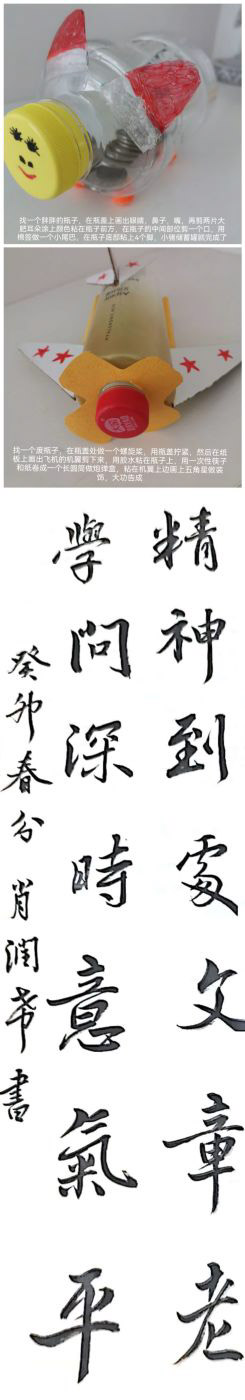 找一个胖胖的瓶子，在瓶盖上画出眼睛，鼻子，嘴，再剪两片大
肥耳朵涂上颜色粘在瓶子前方，在瓶子的中间部位剪一个口，用
棉签做一个小尾巴，在瓶子底部粘上4个脚，小猪储蓄罐就完成了
找一个废瓶子，在瓶盖处做一个螺旋桨，用瓶盖拧紧，然后在纸
板上画出飞机的机翼剪下来，用胶水粘在瓶子上，用一次性筷子
和纸卷成一个长圆筒做炮弹盒，粘在机翼上边画上五角星做装
饰，大功告成
精神到處文章老
學問深時意氣平
癸卯春分肖潤堯書